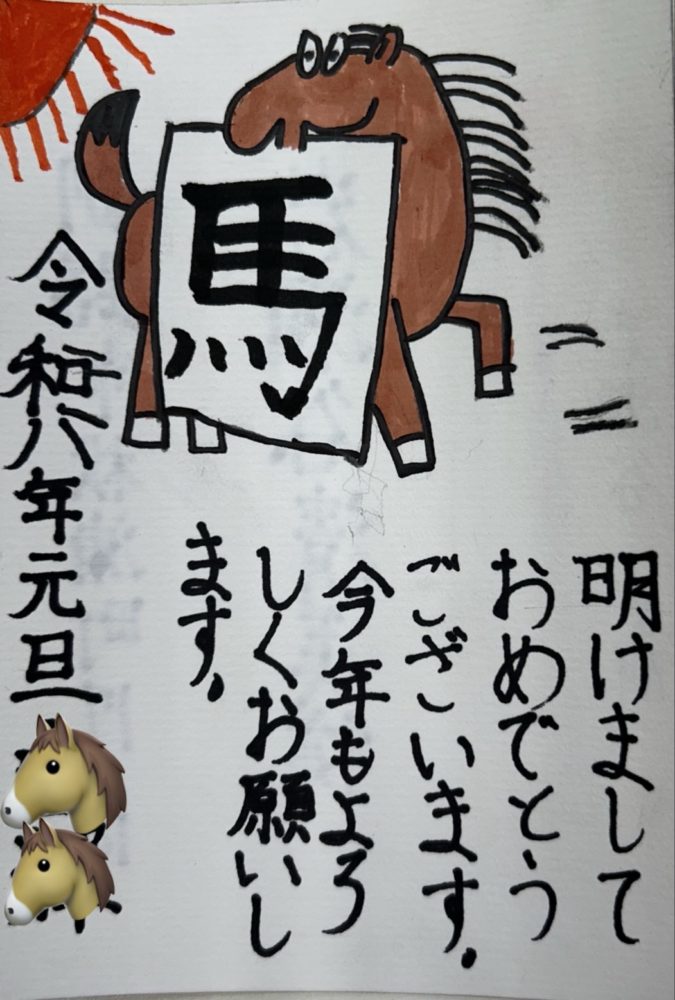 明けまして
おめでとう
ございます。
今年もよろ
しくお願いし
ます。
馬
令和八年元旦